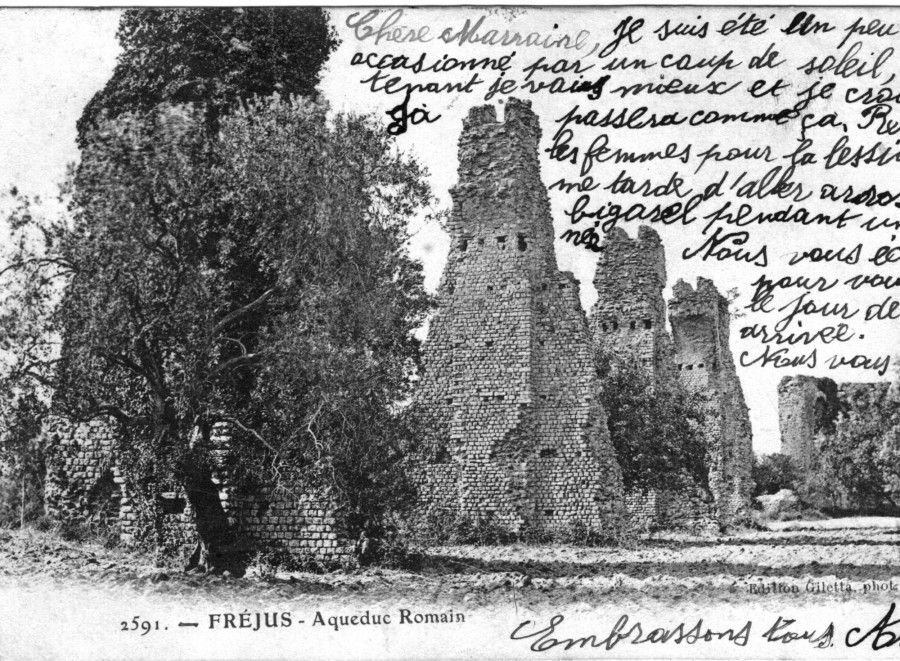 Chère Marraine, Je suis été un peu
occasionné par un coup de soleil,
tenant je vais mieux et je croi
passera comme ça. Re
les femmes pour la lessi
me tarde d'aller arros
pendant un
Nous vous éc
pour vou
le jour de
arrivée.
Nous vous
Edition Giletta, phot
2591. — FRÉJUS - Aqueduc Romain
Embrassons tous.